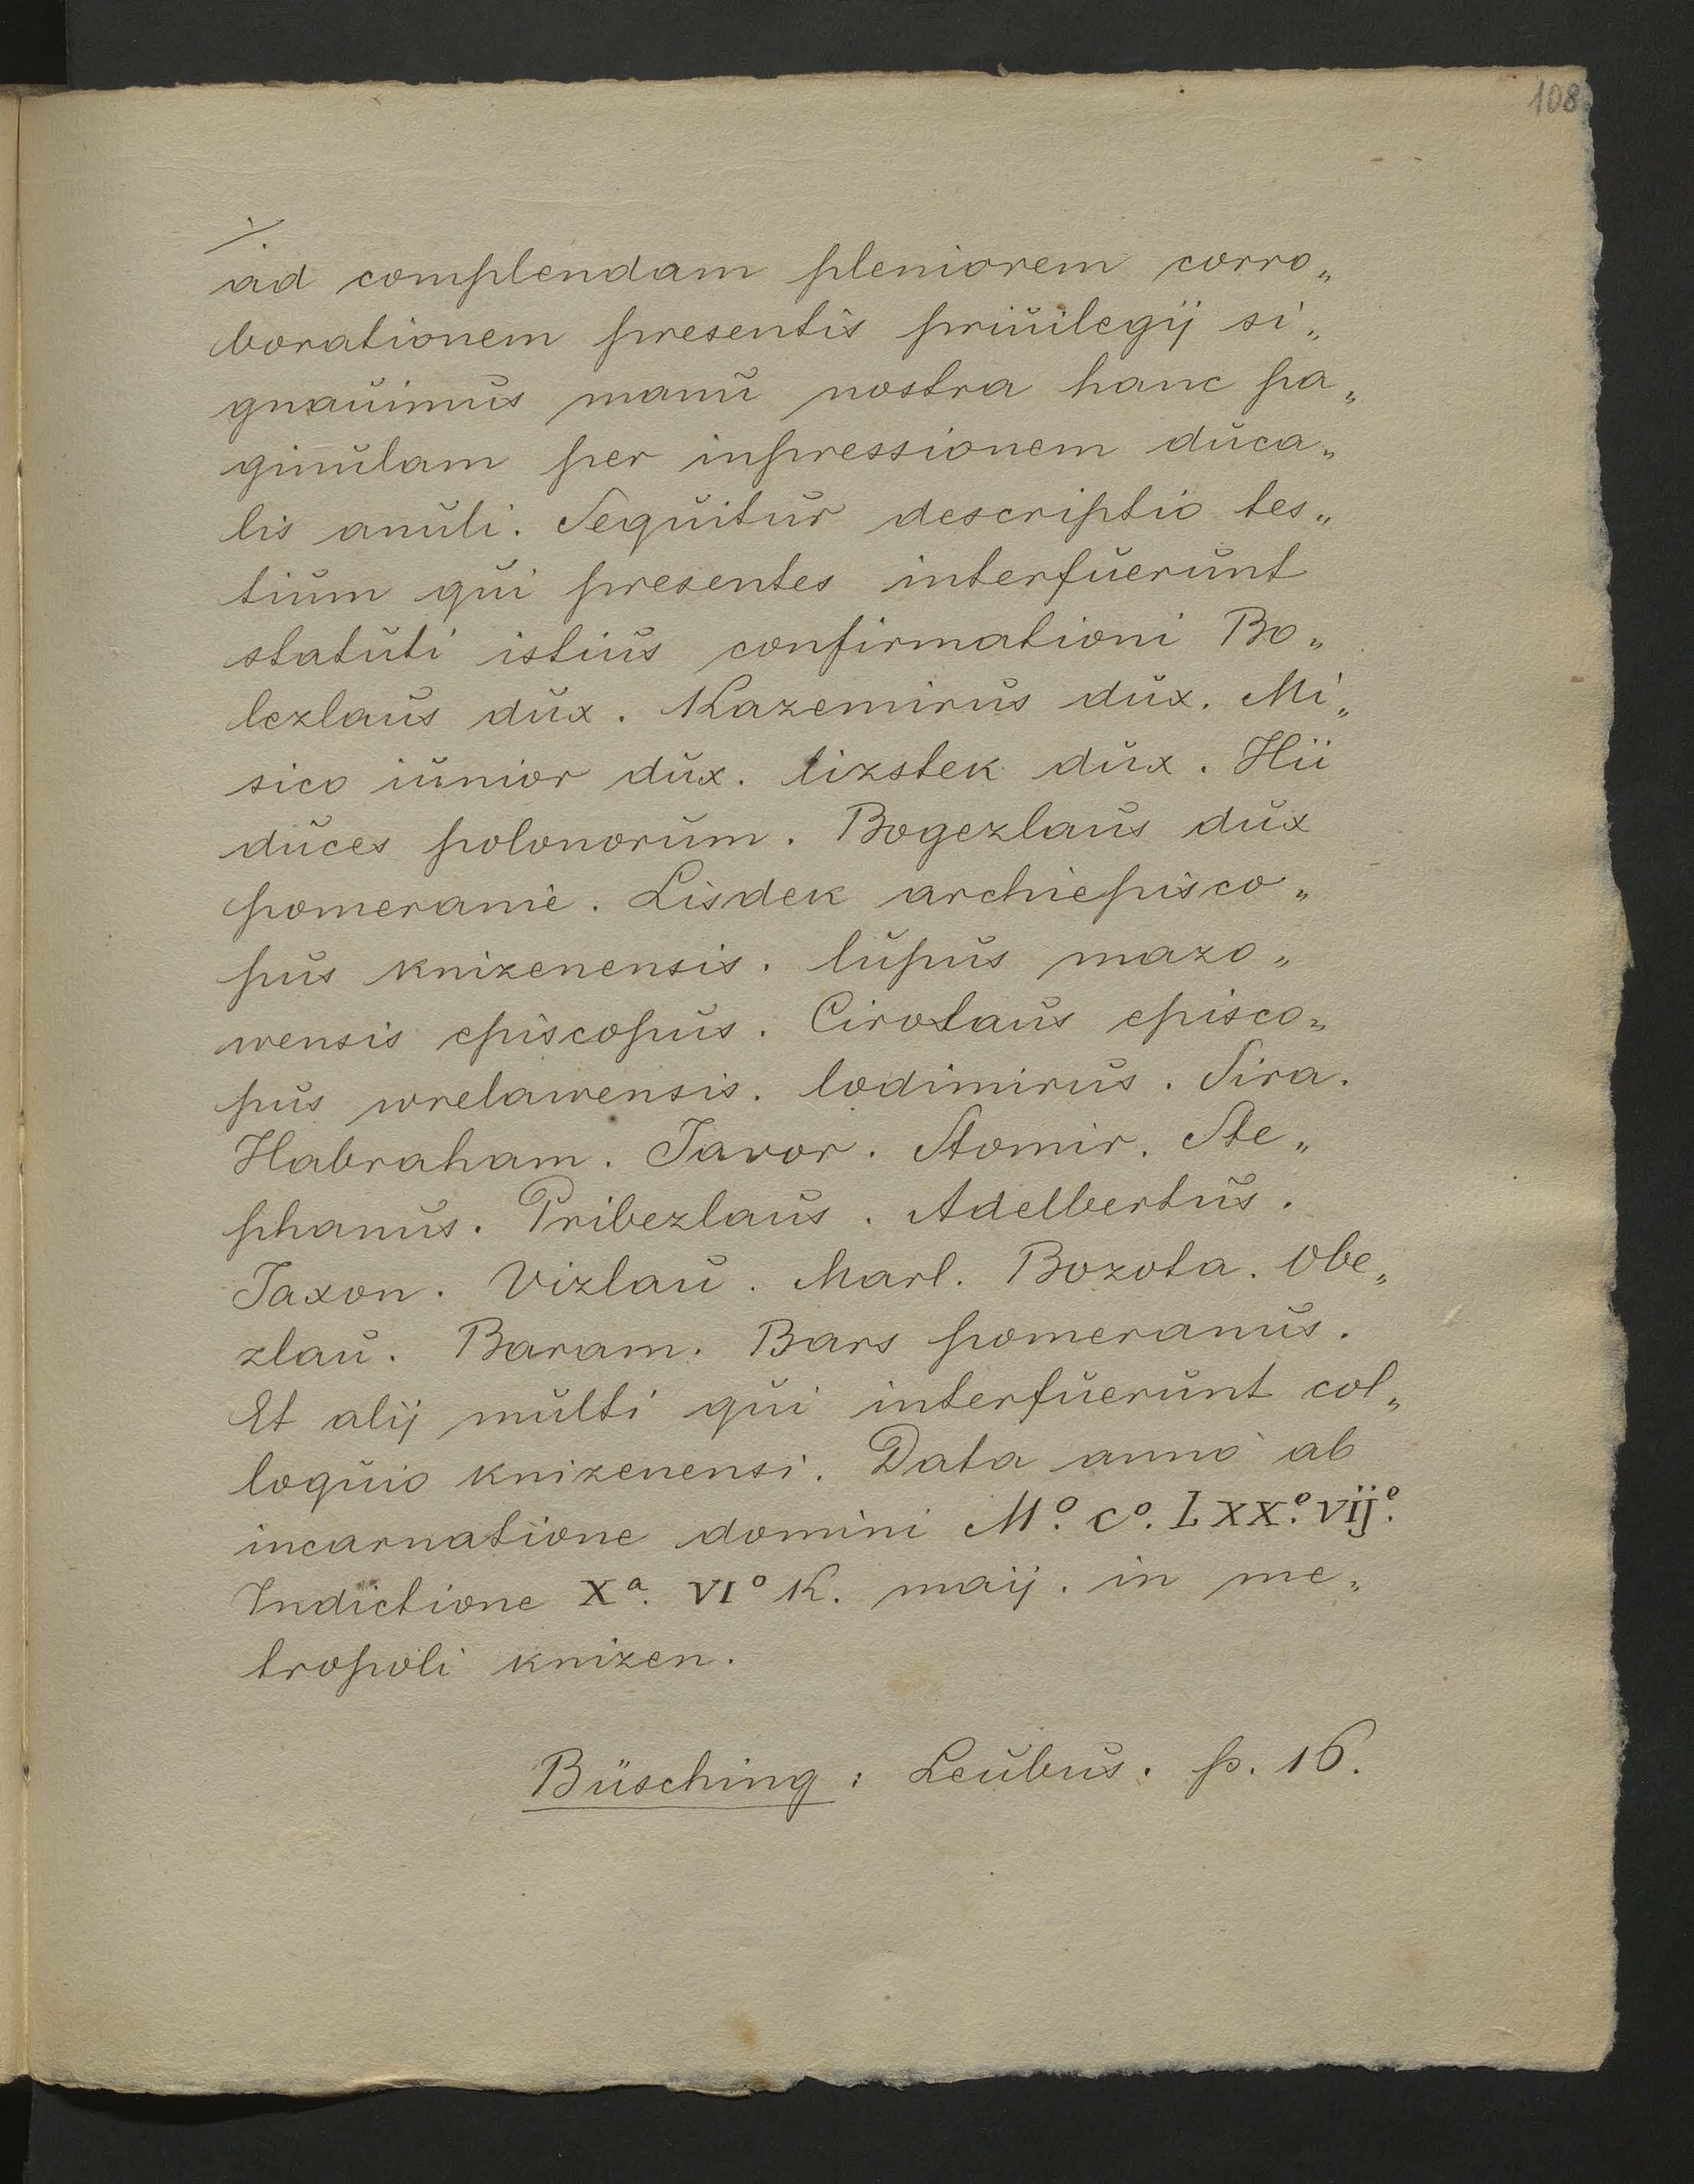 108
ad complendam pleniorem corro„
borationem presentis priuilegij si„
gnauimus manu nostra hanc pa„
ginulam per inpressionem duca„
lis anuli. Sequitur descriptio tes„
tium qui presentes interfuerunt
statuti istius confirmationi Bo„
lezlaus dux. Kazemirus dux. Mi„
sico iunior dux. lizstek dux. Hii
duces polonorum. Bogezlaus dux
pomeranie. Lisdek archiepisco„
pus knizenensis. lupus mazo„
wensis episcopus. Cirolaus episco„
pus wrelawensis. lodimirus. Sira.
Habraham. Javor. Stomir. Ste„
phanus. Pribezlaus. Adelbertus.
Jaxon. Vizlau. Marl. Bozota. Obe„
zlau. Baram. Bars pomeranus.
Et alij multi qui interfuerunt col„
loquio knizenensi. Data anno ab
incarnatione domini Mº. Cº. LXXº. VIJº.
Indictione Xª. VIº K. maij. in me„
tropoli knizen.
Büsching: Leubus. p. 16.